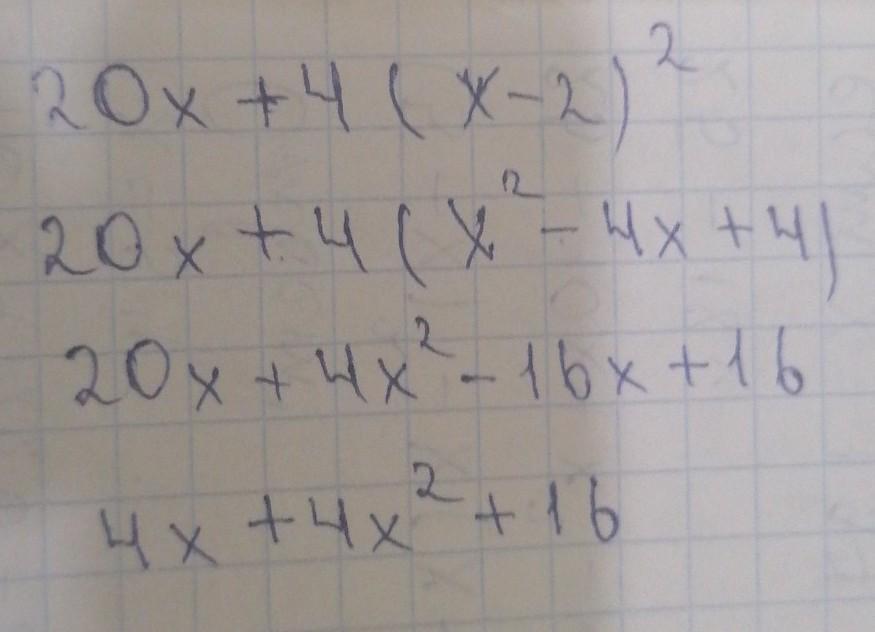 20x + 4(x-2)²
20x + 4(x² - 4x + 4)
20x + 4x² - 16x + 16
4x + 4x² + 16